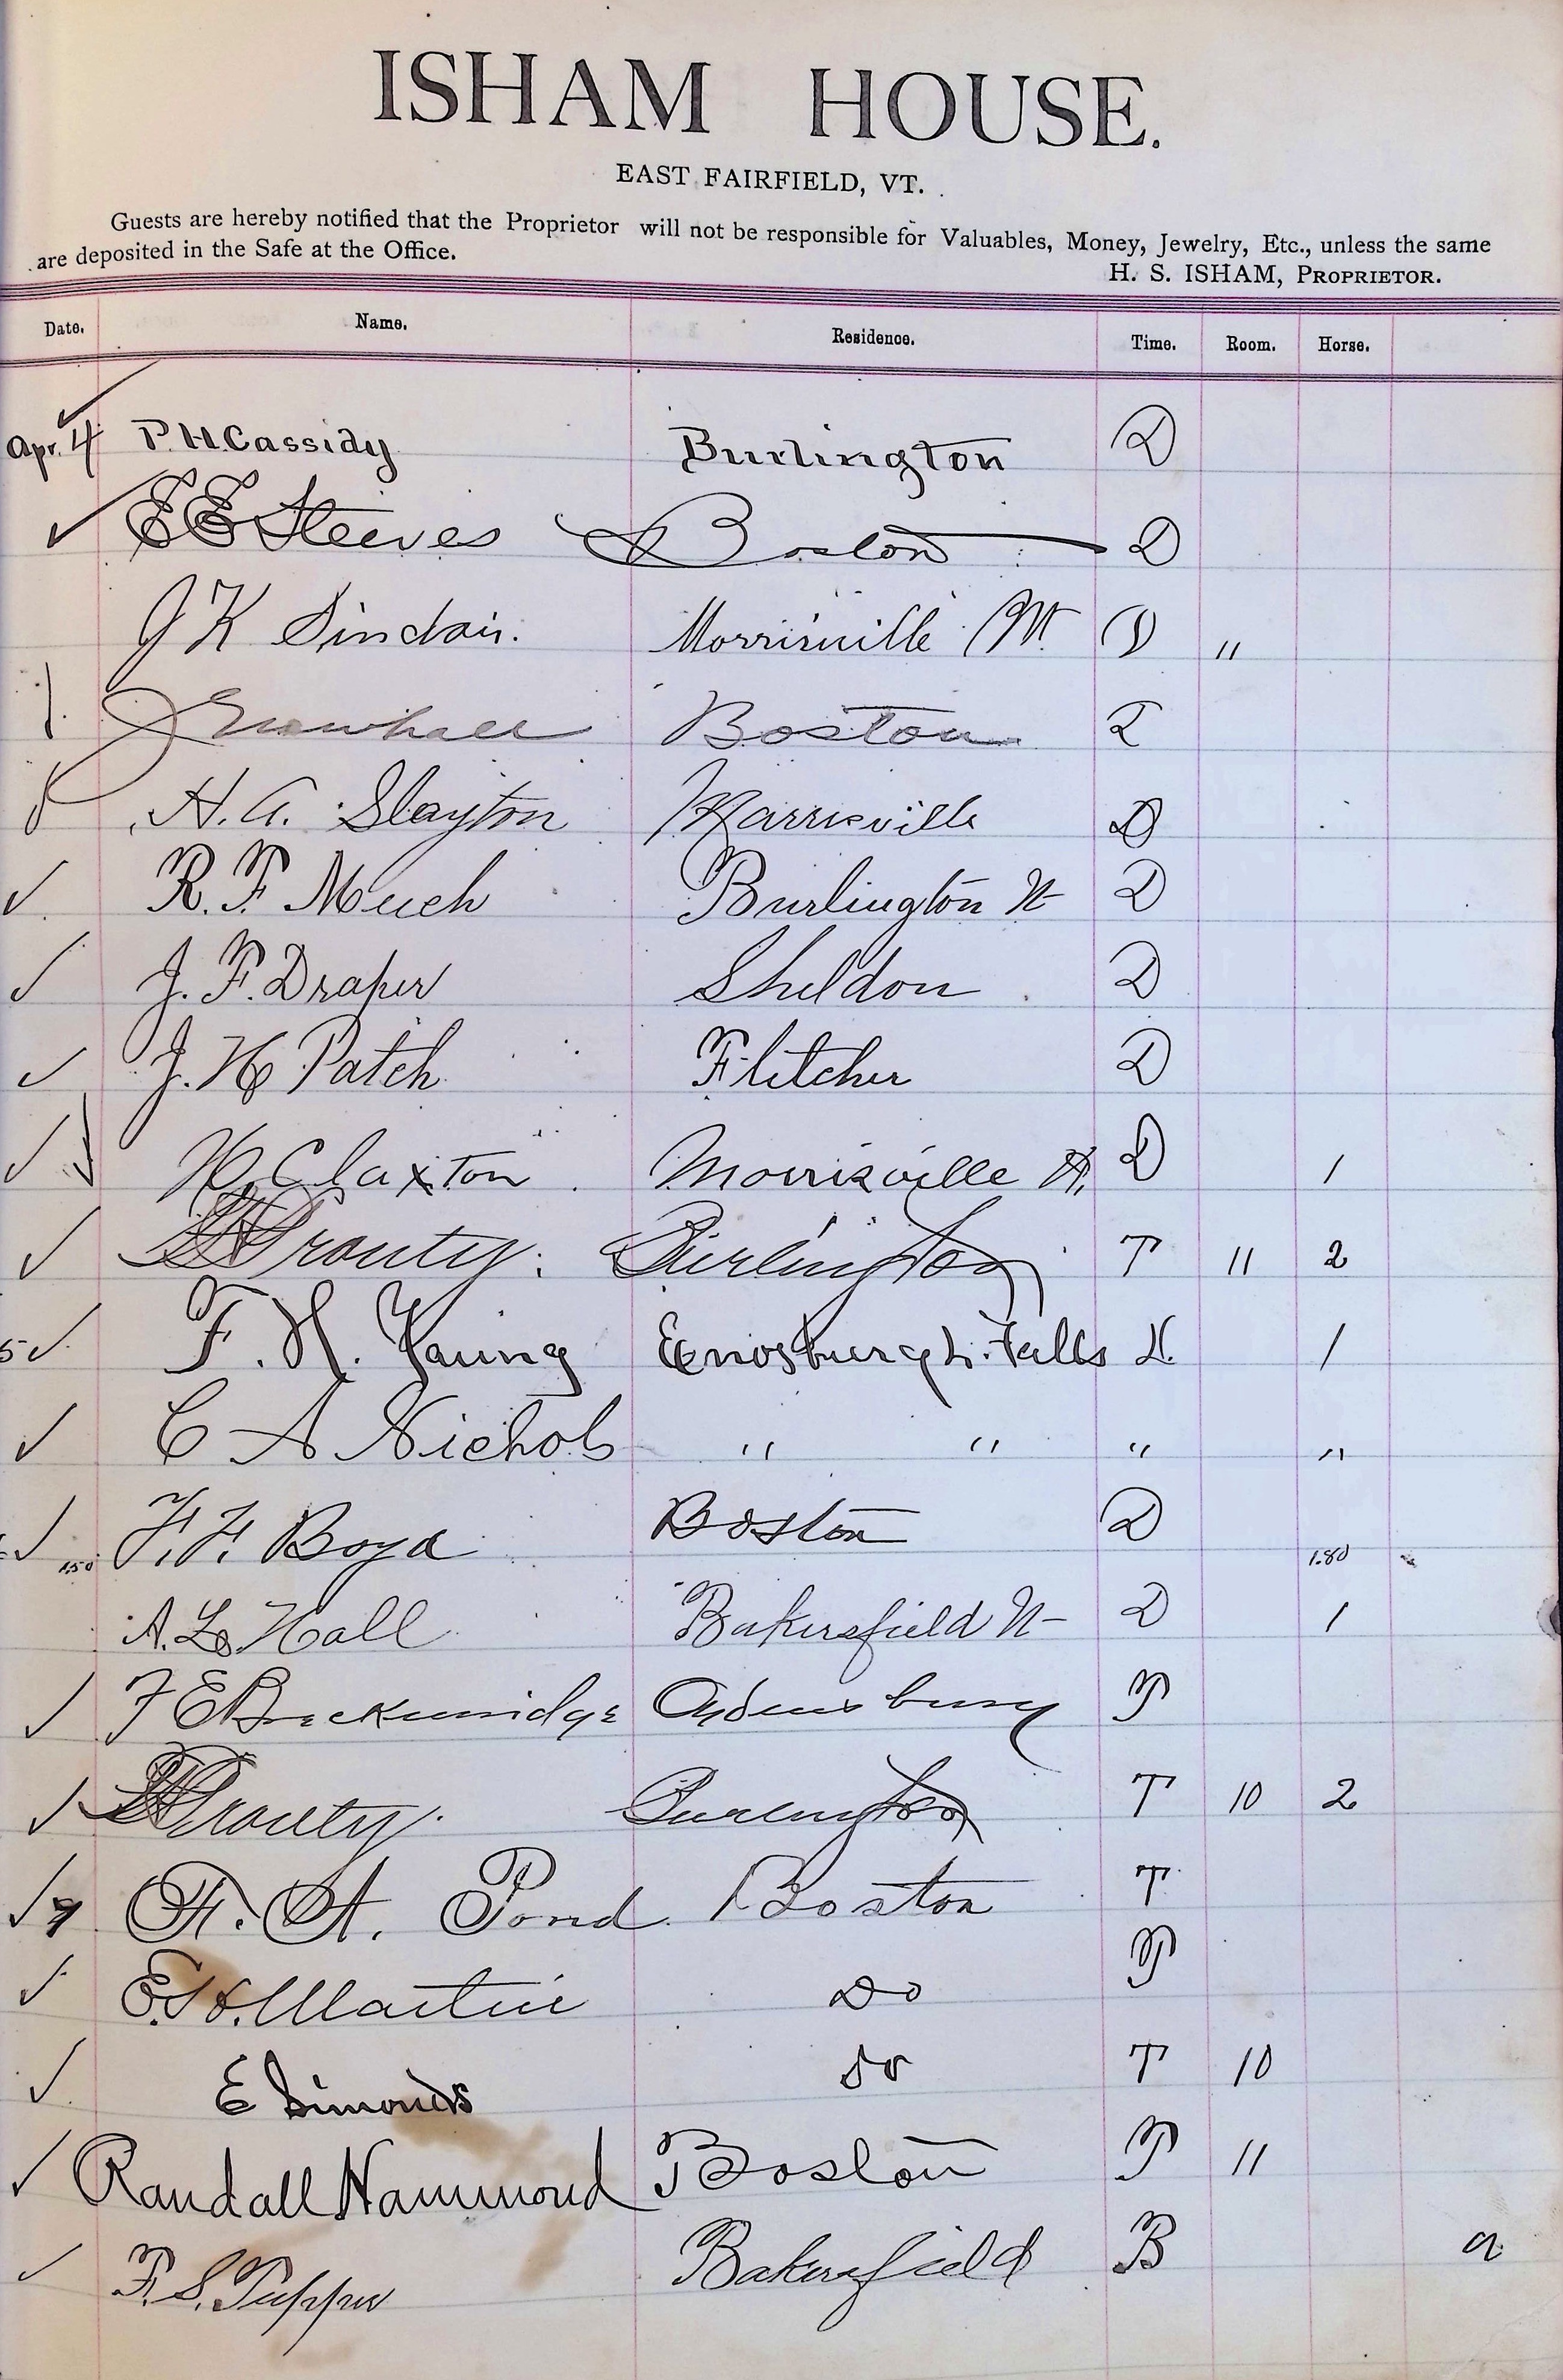 ISHAM HOUSE.
EAST FAIRFIELD, VT.
Guests are hereby notified that the Proprietor will not be responsible for Valuables, Money, Jewelry, Etc., unless the same
are deposited in the Safe at the Office.
H. S. ISHAM, PROPRIETOR.
Date. Name. Residence. Time. Room. Horse.
Apr. 4 P. H. Cassidy Burlington D
E E Steeves Boston D
J K Sinclair. Morrisville Vt. D "
Boston
H. A. Slayton Morrisville D
R. F. Much Burlington Vt D
J. F. Draper Sheldon D
J. H Patch Fletcher D
H. Claxton Morrisville Vt. D 1
Prouty. Burlington T 11 2
F. H. Young Enosburgh. Falls 1
C A Nichols " " " "
1.50 F. F. Boyd Boston D 1.80
A. L. Hall Bakersfield Vt D 1
F E Breckenridge Ogdensburg
Prouty. Burlington T 10 2
F. A. Pond Boston T
E. H. Martin Do
E Simonds do T 10
Randall Hammond Boston 11
F. S. Tupper Bakersfield B a